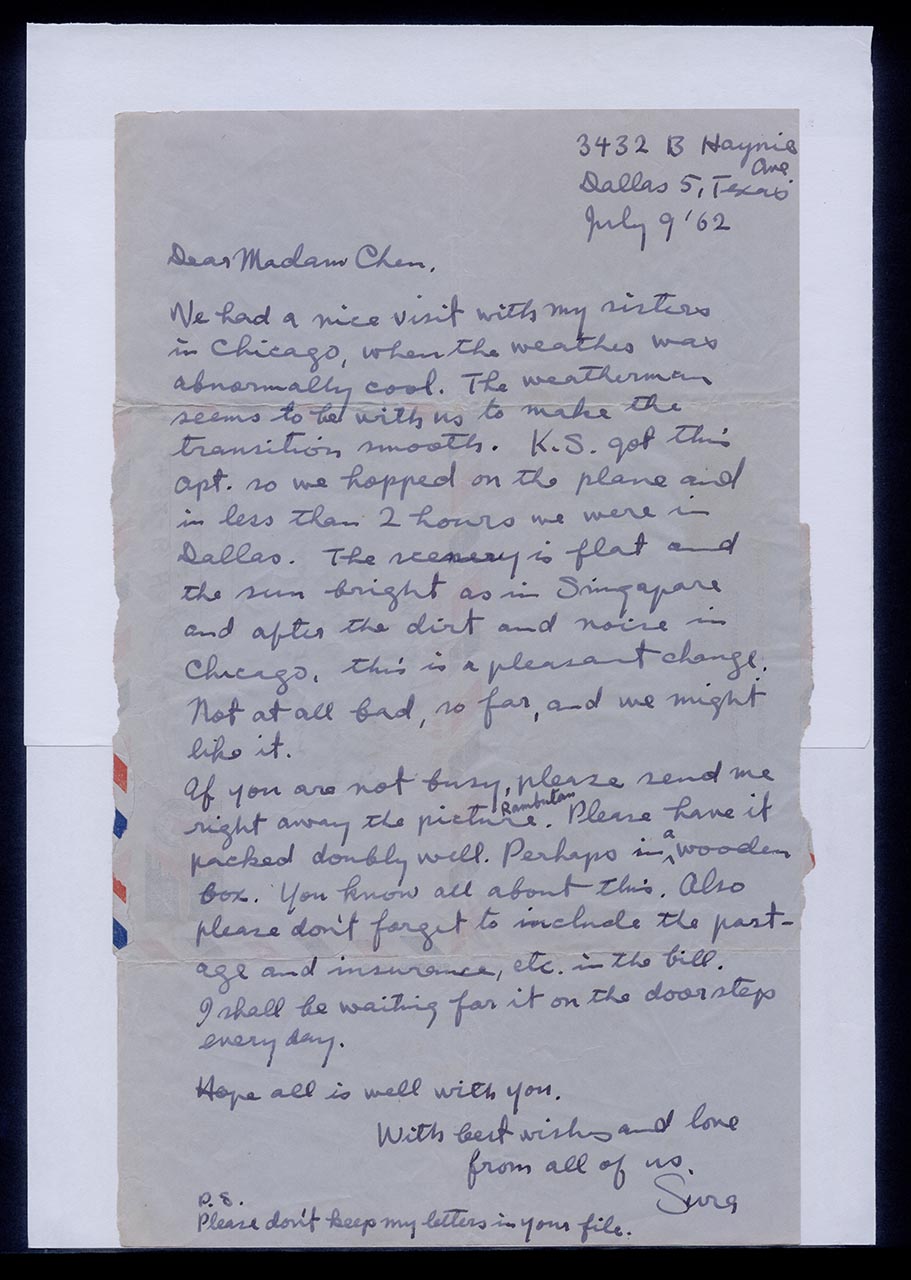 3432 B Haynie
Ave.
Dallas 5, Texas
July 9 '62
Dear Madam Chen,
We had a nice visit with my sisters
in Chicago, when the weather was
abnormally cool. The weatherman
seems to be with us to make the
transition smooth. K.S. got this
apt. so we hopped on the plane and
in less than 2 hours we were in
Dallas. The scenery is flat and
the sun bright as in Singapore
and after the dirt and noise in
Chicago, this is a pleasant change.
Not at all bad, so far, and we might
like it.
If you are not busy, please send me
right away the picture Rambutan. Please have it
packed doubly well. Perhaps in a wooden
box. You know all about this. Also
please don't forget to include the post-
age and insurance, etc. in the bill.
I shall be waiting for it on the doorsteps
every day.
Hope all is well with you.
With best wishes and love
from all of us.
P.S.
Please don't keep my letters in your file.